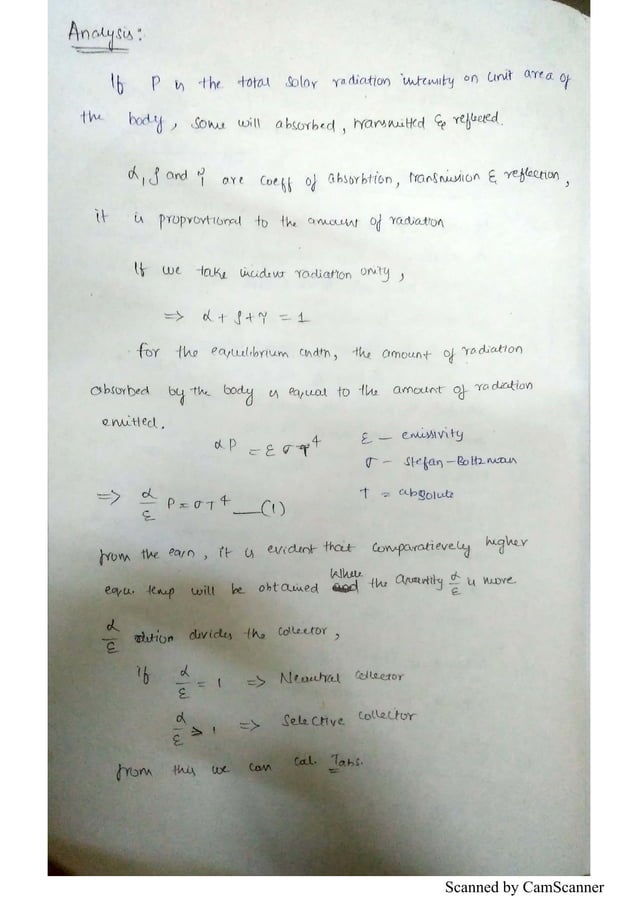 Analysis:
If P is the total solar radiation intensity on Unit area of
the body, some will absorbed, transmitted & reflected.
α, ρ and γ are coeff of absorbtion, transmission & reflection,
it is proprortional to the amount of radiation
If we take incident radiation unity,
=> α + ρ + γ = 1
for the equilibrium cndtn, the amount of radiation
absorbed by the body is equal to the amount of radiation
emitted.
αP = ε σ T⁴ ε — emissivity
σ — Stefan-Boltzman
=> α/ε P = σT⁴ —(1) T = absolute
from the eqn, it is evident that comparatievely higher
equ. temp will be obtained where the quantity α/ε is more
α/ε divides the collector,
if α/ε = 1 => Neautral collector
α/ε ⩾ 1 => Selective collector
from this we can cal. Tabs.
Scanned by CamScanner